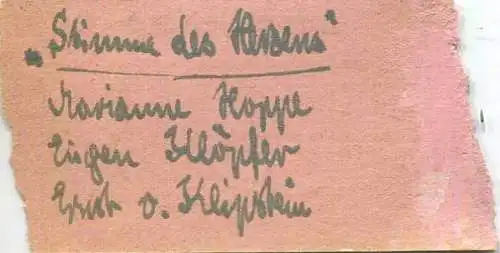 "Stimme des Herzens"
Marianne Hoppe
Eugen Klöpfer
Ernst v. Klipstein